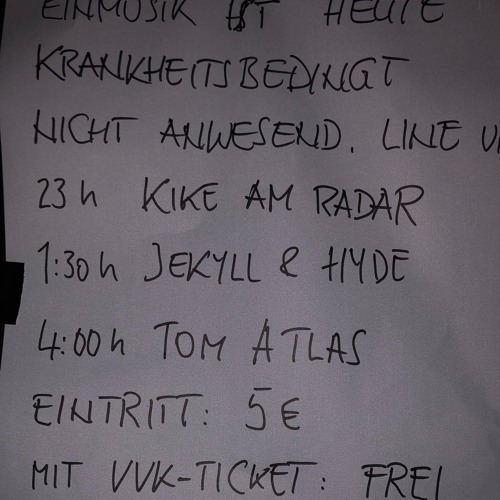 EINMUSIK IST HEUTE
KRANKHEITSBEDINGT
NICHT ANWESEND. LINE U
23 h KIKE AM RADAR
1:30 h JEKYLL & HYDE
4:00 h TOM ATLAS
EINTRITT: 5 €
MIT VVK-TICKET: FREI